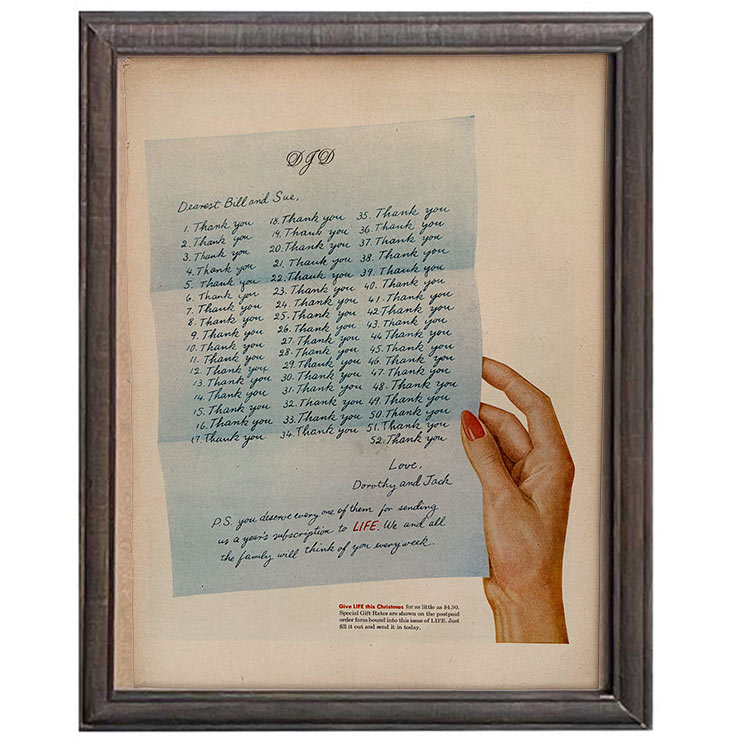 DJD
Dearest Bill and Sue,
1. Thank you
2. Thank you
3. Thank you
4. Thank you
5. Thank you
6. Thank you
7. Thank you
8. Thank you
9. Thank you
10. Thank you
11. Thank you
12. Thank you
13. Thank you
14. Thank you
15. Thank you
16. Thank you
17. Thank you
18. Thank you
19. Thank you
20. Thank you
21. Thank you
22. Thank you
23. Thank you
24. Thank you
25. Thank you
26. Thank you
27. Thank you
28. Thank you
29. Thank you
30. Thank you
31. Thank you
32. Thank you
33. Thank you
34. Thank you
35. Thank you
36. Thank you
37. Thank you
38. Thank you
39. Thank you
40. Thank you
41. Thank you
42. Thank you
43. Thank you
44. Thank you
45. Thank you
46. Thank you
47. Thank you
48. Thank you
49. Thank you
50. Thank you
51. Thank you
52. Thank you
Love,
Dorothy and Jack
P.S. you deserve every one of them for sending
us a year's subscription to LIFE. We and all
the family will think of you every week.
Give LIFE this Christmas for as little as $4.50.
Special Gift Rates are shown on the postpaid
order form bound into this issue of LIFE. Just
fill it out and send it in today.